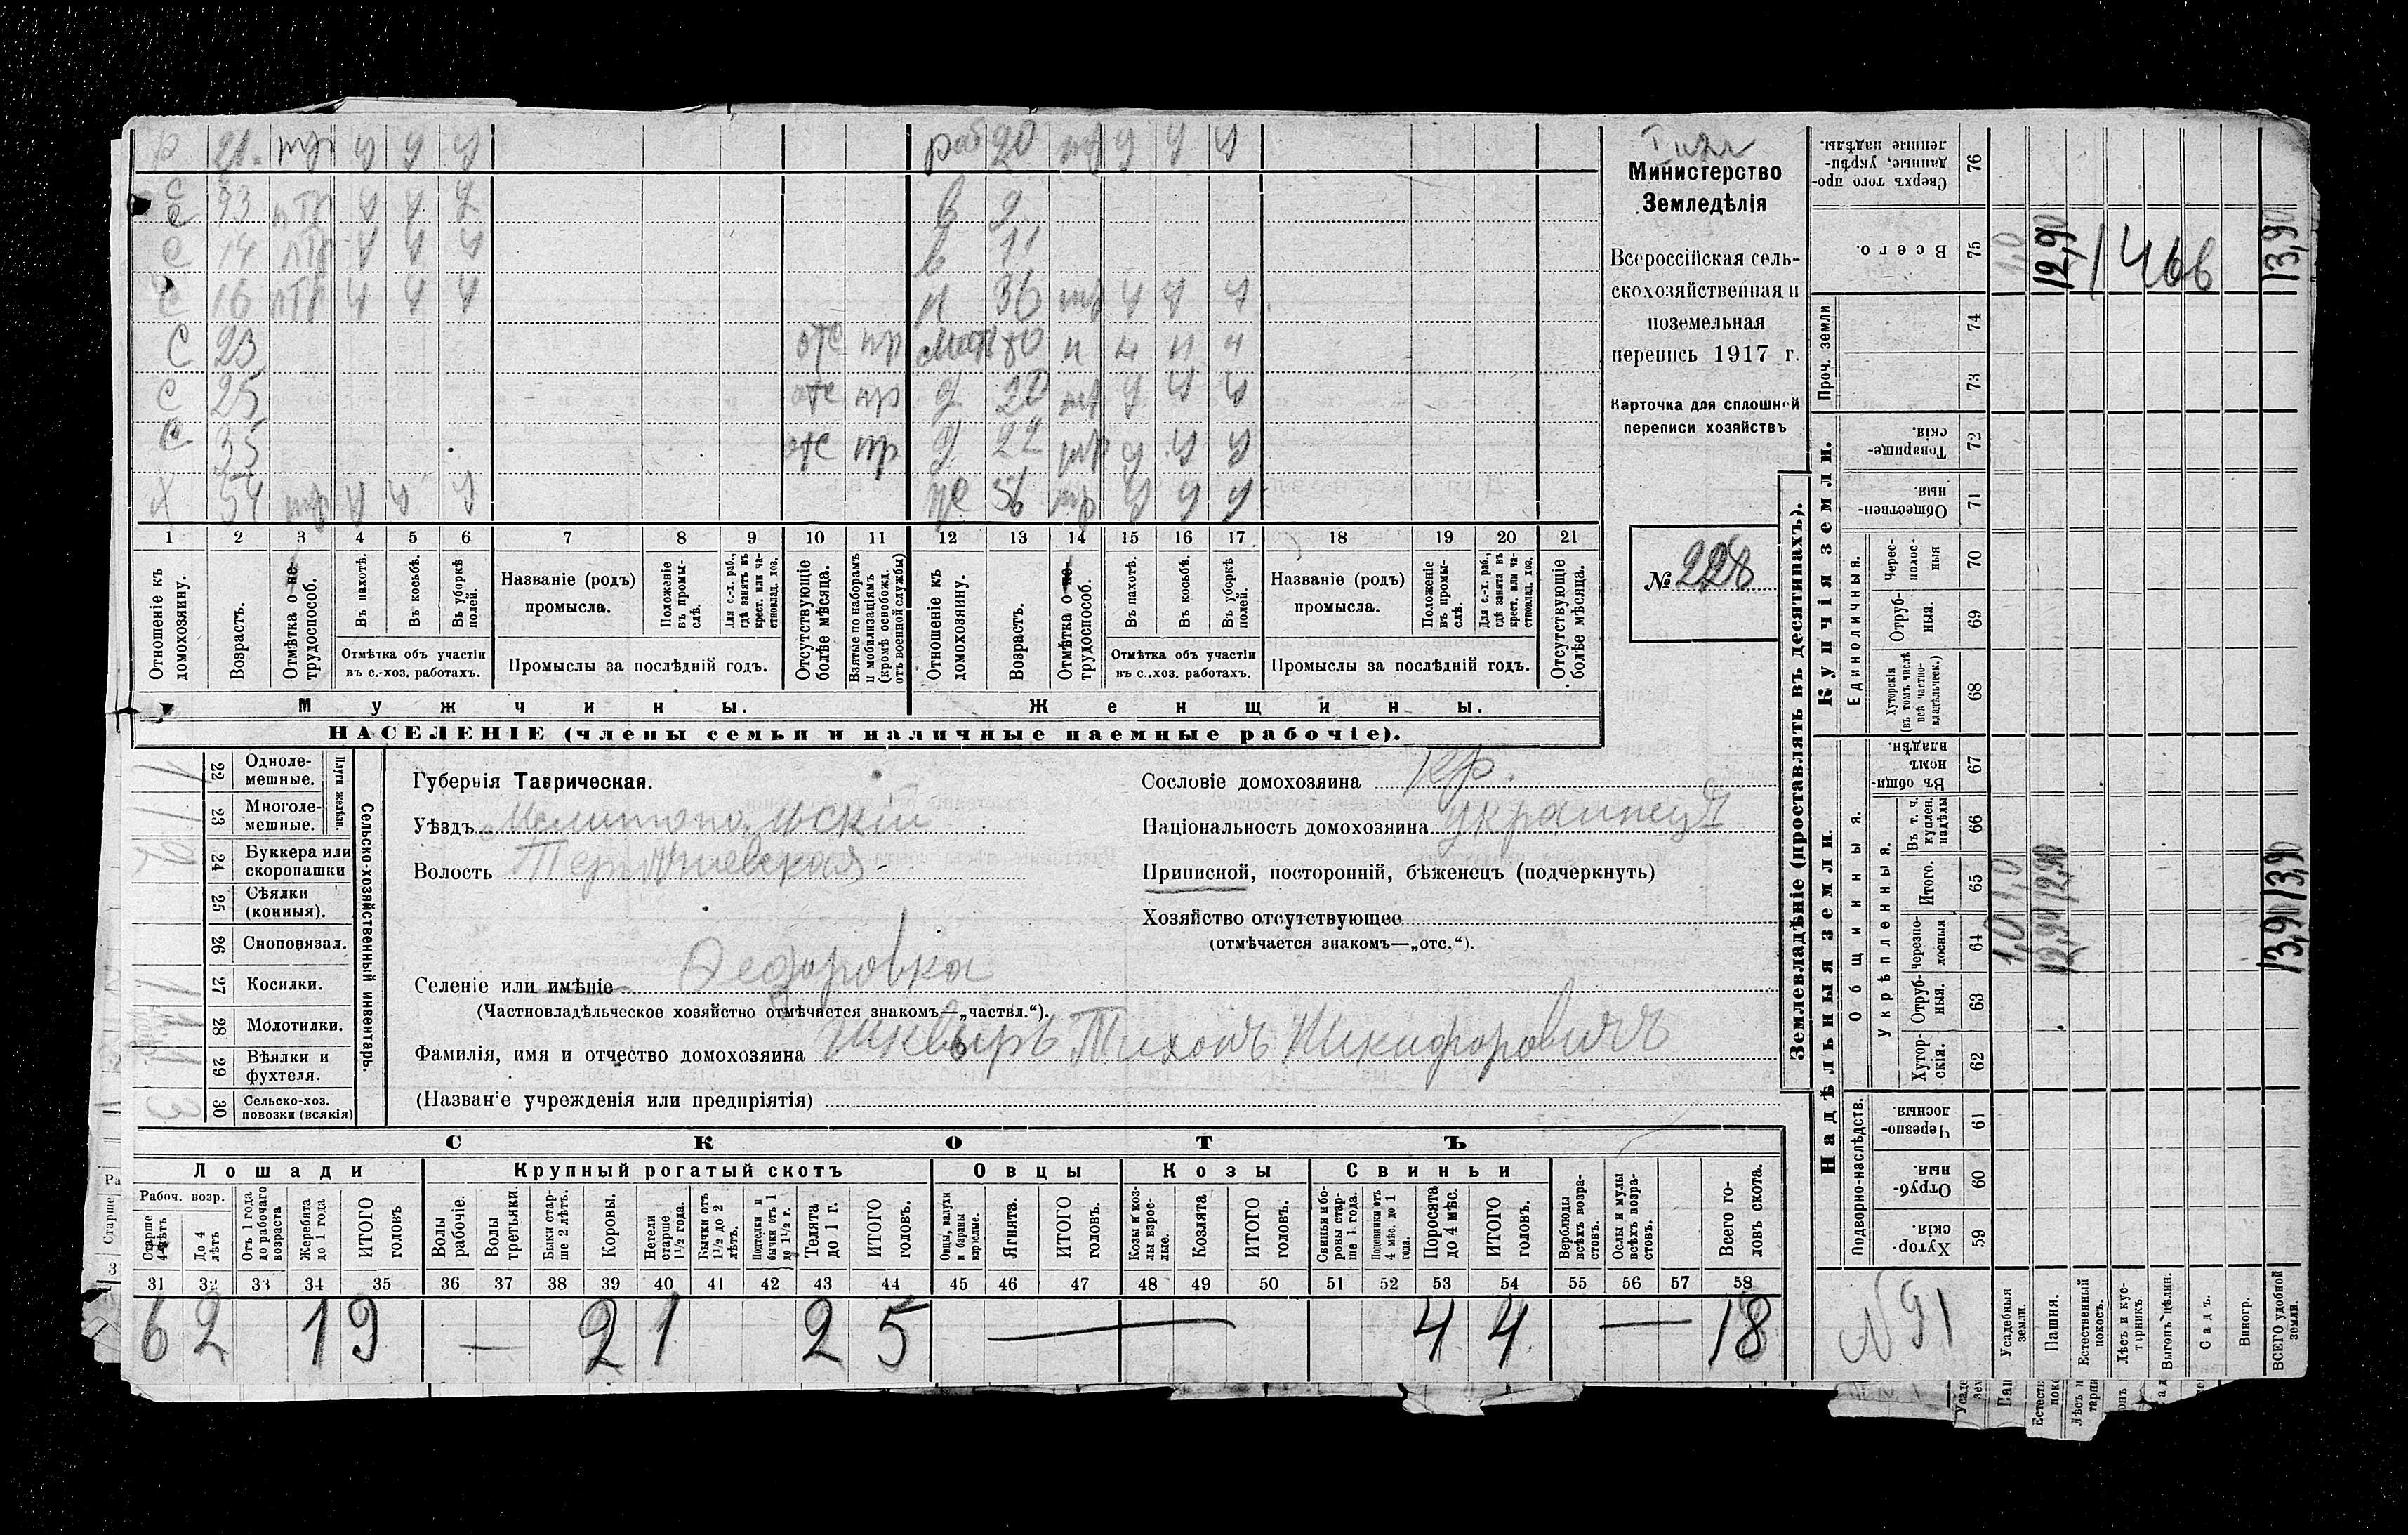 р 21. тр у у у раб 20 тр у у у
с 13 птр у у у в 9
с 14 птр у у у в 11
с 16 птр у у у н 36 тр у у у
С 23 отс пр мать 80 н н н н
С 25 отс пр д 20 тр у у у
С 35 отс пр д 22 тр у у у
Х 54 тр у у у же 56 тр у у у
1 2 3 4 5 6 7 8 9 10 11 12 13 14 15 16 17 18 19 20 21
Отношеніе къ домохозяину.
Возрастъ.
Отмѣтка о не-трудоспособ.
Въ пахотѣ.
Въ косьбѣ.
Въ уборкѣ полей.
Отмѣтка объ участіи
въ с.-хоз. работахъ.
Названіе (родъ)
промысла.
Положеніе въ промы-слѣ.
Для с.-х. раб., гдѣ занятъ въ крест. или ча-стновлад. хоз.
Промыслы за послѣдній годъ.
Отсутствующіе болѣе мѣсяца.
Взятые по наборамъ и мобилизаціямъ (кромѣ освобожд. отъ военной службы)
Отношеніе къ домохозяину.
Возрастъ.
Отмѣтка о не-трудоспособ.
Въ пахотѣ.
Въ косьбѣ.
Въ уборкѣ полей.
Отмѣтка объ участіи
въ с.-хоз. работахъ.
Названіе (родъ)
промысла.
Положеніе въ промы-слѣ.
Для с.-х. раб., гдѣ занята въ крест. или ча-стновлад. хоз.
Промыслы за послѣдній годъ.
Отсутствующіе болѣе мѣсяца.
Мужчины. Женщины.
НАСЕЛЕНІЕ (члены семьи и наличные наемные рабочіе).
Министерство
Земледѣлія
Всероссійская сель-
скохозяйственная и
поземельная
перепись 1917 г.
Карточка для сплошной
переписи хозяйствъ
№ 228
Сельско-хозяйственный инвентарь.
Плуги желѣзн.
22 Одноле-мешные. 1
23 Многоле-мешные. 1
24 Буккера или скоропашки 2
25 Сѣялки (конныя).
26 Сноповязал.
27 Косилки. 1
28 Молотилки. 1
29 Вѣялки и фухтеля. 1
30 Сельско-хоз. повозки (всякія) 3
Губернія Таврическая.
Уѣздъ Мелитопольскій
Волость Терпѣніевская
Селеніе или имѣніе Федоровка
(Частновладѣльческое хозяйство отмѣчается знакомъ—„частвл.“).
Фамилія, имя и отчество домохозяина Шквыръ Тихонъ Никифоровичъ
(Названіе учрежденія или предпріятія)
Сословіе домохозяина Кр.
Національность домохозяина украинецъ
Приписной, посторонній, бѣженецъ (подчеркнуть)
Хозяйство отсутствующее
(отмѣчается знакомъ—„отс.“).
СКОТЪ
Лошади Крупный рогатый скотъ Овцы Козы Свиньи
Рабоч. возр.
Старше 4 лѣтъ
До 4 лѣтъ
Отъ 1 года до рабочаго возраста
Жеребята до 1 года
ИТОГО головъ
Волы рабочіе.
Волы третьяки.
Быки стар-ше 2 лѣтъ.
Коровы.
Нетели старше 1½ года.
Бычки отъ 1½ до 2 лѣтъ.
Подтелки и бычки отъ 1 до 1½ г.
Телята до 1 г.
ИТОГО головъ.
Овцы, валухи и бараны взрослые.
Ягнята.
ИТОГО головъ.
Козы и коз-лы взрос-лые.
Козлята
ИТОГО головъ.
Свиньи и бо-ровы стар-ше 1 года.
Подсвинки отъ 4 мѣс. до 1 года.
Поросята до 4 мѣс.
ИТОГО головъ.
Верблюды всѣхъ возра-стовъ.
Ослы и мулы всѣхъ возра-стовъ.
Всего го-ловъ скота.
31 32 33 34 35 36 37 38 39 40 41 42 43 44 45 46 47 48 49 50 51 52 53 54 55 56 57 58
6 2 1 9 — 2 1 2 5 — 4 4 — 18
Землевладѣніе (проставлять въ десятинахъ).
Надѣльныя земли. Купчія земли.
Подворно-наслѣдств. Общинныя. Единоличныя. Проч. земли
Укрѣпленныя.
Хутор-скія 59
Отруб-ныя. 60
Черезпо-лосныя. 61
Хутор-скія. 62
Отруб-ныя. 63
Черезпо-лосныя 64
Итого. 65
Въ т. ч. куплен. надѣлы 66
Въ общи-номъ владѣн. 67
Хуторскія (въ томъ числѣ всѣ частно-владѣльческ.) 68
Отруб-ныя. 69
Черес-полос-ныя 70
Обществен-ныя. 71
Товарище-скія. 72
73
74
Всего. 75
Сверхъ того про-данные, укрѣп-ленные надѣлы. 76
№ 91
Усадебныя земли. 1,0 1,0 1,0
Пашня. 12,90 12,90 12,90
Естественный покосъ.
Лѣсъ и кус-тарникъ.
Выгонъ, цѣлин.
Садъ.
Виногр.
ВСЕГО удобной земли. 13,90 13,90 13,90